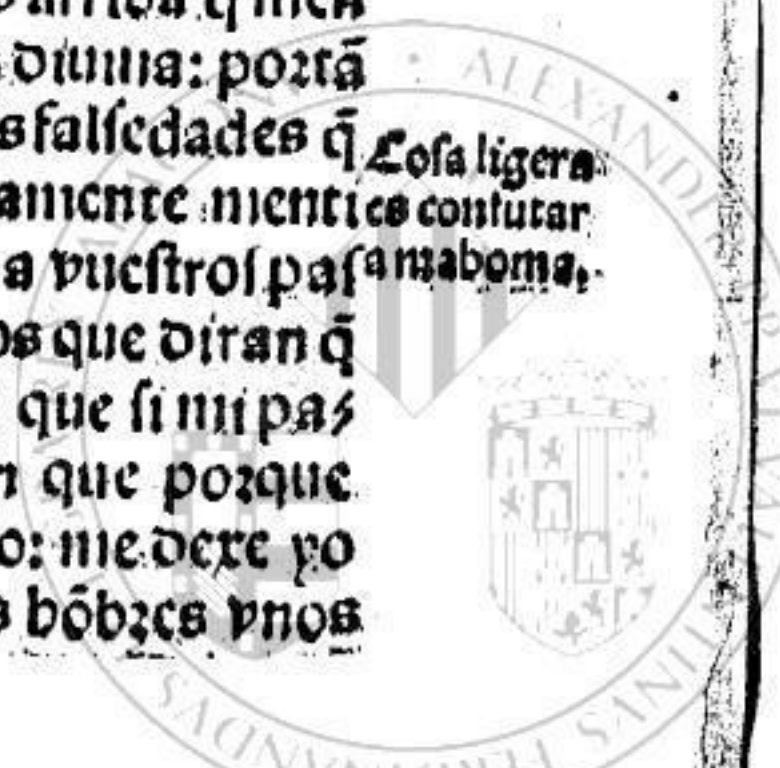 diuina: portā
s falsedades q̄
amente menti
a vuestros pas
os que diran q̄
que si mi pa/
n que porque
o: me dexe yo
s hōbres vnos
Cosa ligera
es confutar
a mahoma.